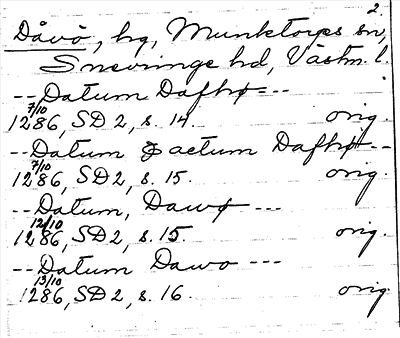 2.
Dåvö, hg, Munktorps sn,
Snevringe hd, Västm. l.
-- Datum Dafhø ---
7/10
1286, SD 2, s. 14. orig.
-- Datum & actum Dafhø --
7/10
1286, SD 2, s. 15. orig.
-- Datum, Dawø ---
12/10
1286, SD 2, s. 15. orig.
-- Datum Dawo ---
13/10
1286, SD 2, s. 16 orig.